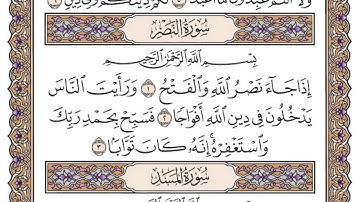 وَلَا أَنتُمْ عَـٰبِدُونَ مَا أَعْبُدُ ٥ لَكُمْ دِينُكُمْ وَلِيَ دِينِ ٦
سُورَةُ النَّصْرِ
بِسْمِ اللَّهِ الرَّحْمَـٰنِ الرَّحِيمِ
إِذَا جَآءَ نَصْرُ اللَّهِ وَالْفَتْحُ ١ وَرَأَيْتَ النَّاسَ
يَدْخُلُونَ فِي دِينِ اللَّهِ أَفْوَاجًا ٢ فَسَبِّحْ بِحَمْدِ رَبِّكَ
وَاسْتَغْفِرْهُ إِنَّهُ كَانَ تَوَّابًا ٣
سُورَةُ الْمَسَدِ